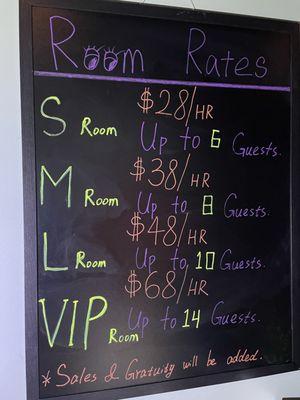 Room Rates
S Room $28/HR
Up to 6 Guests.
M Room $38/HR
Up to 8 Guests.
L Room $48/HR
Up to 10 Guests.
VIP Room $68/HR
Up to 14 Guests.
* Sales & Gratuity will be added.